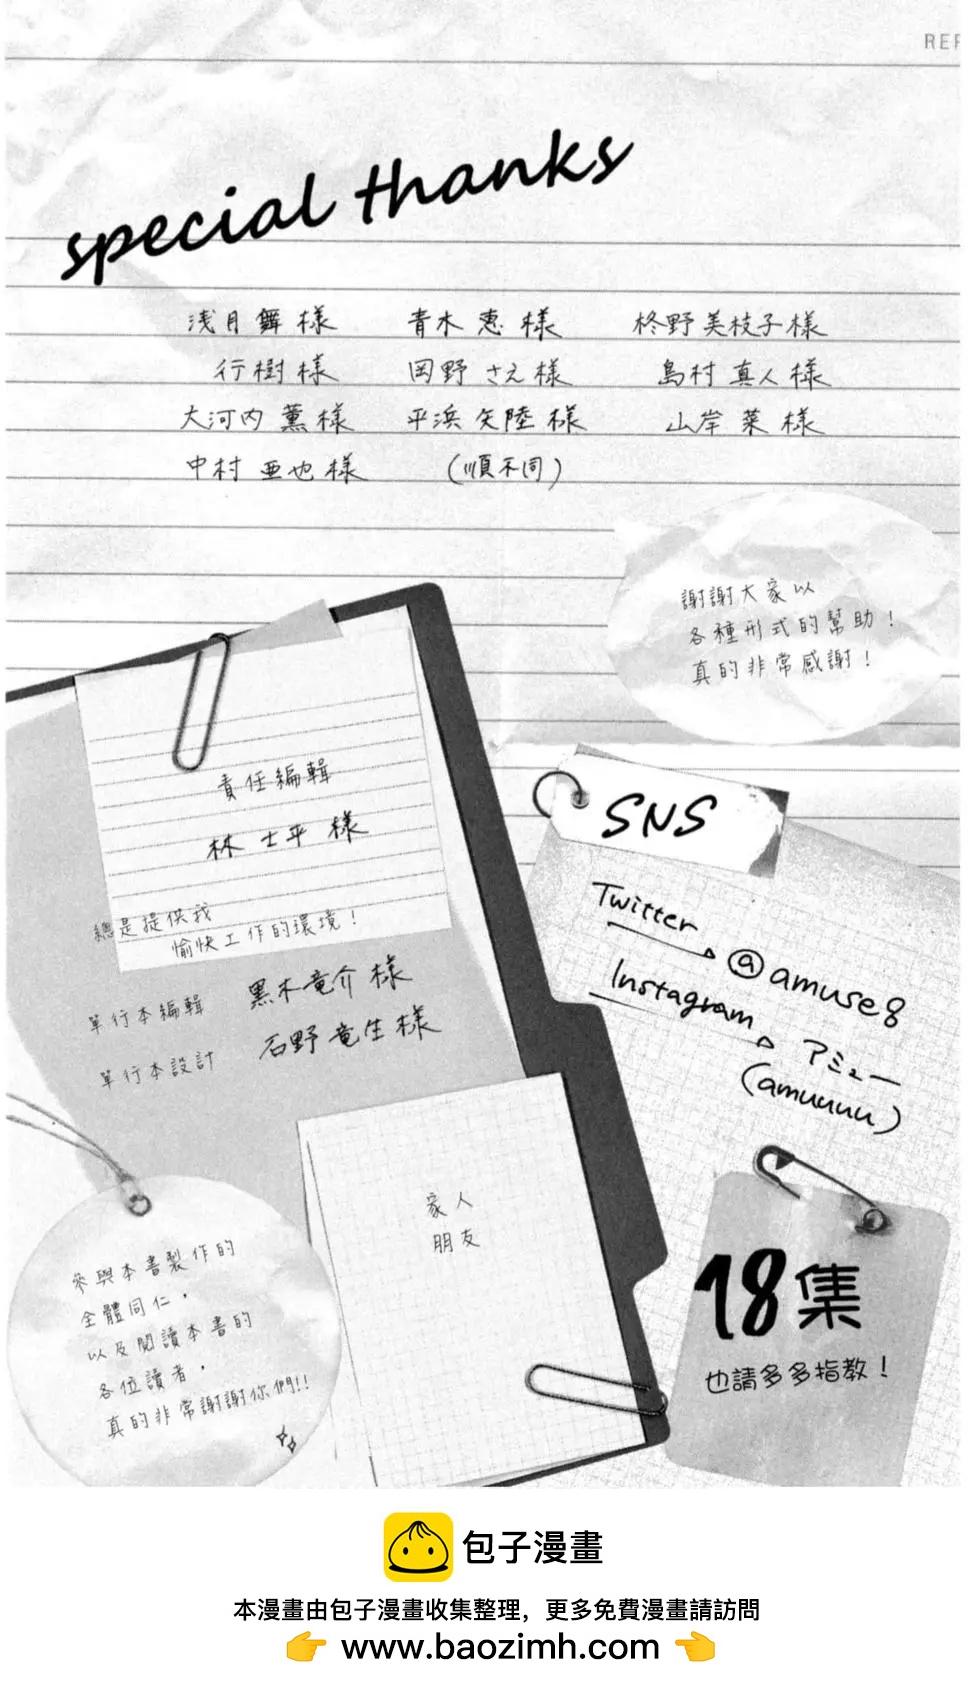 REP
special thanks
浅月舞様 青木恵様 柊野美枝子様
行樹様 岡野さえ様 島村真人様
大河内薫様 平浜矢陸様 山岸菜様
中村亜也様 (順不同)
謝謝大家以
各種形式的幫助！
真的非常感謝！
責任編輯
林士平様
總是提供我
愉快工作的環境！
單行本編輯 黒木竜介様
單行本設計 石野竜生様
SNS
Twitter
@amuse8
Instagram
アミュー
(amuuuu)
家人
朋友
參與本書製作的
全體同仁，
以及閱讀本書的
各位讀者，
真的非常謝謝你們!!
18集
也請多多指教！
包子漫畫
本漫畫由包子漫畫收集整理，更多免費漫畫請訪問
👉 www.baozimh.com 👈